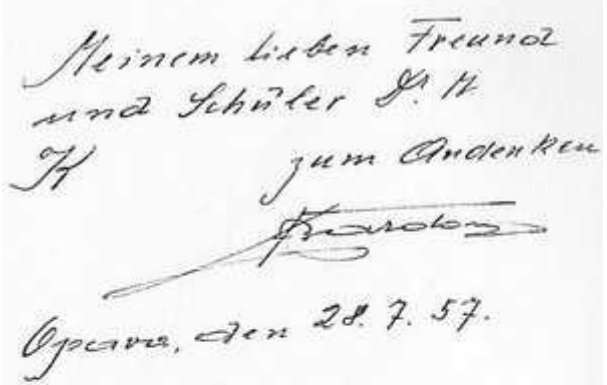 Meinem lieben Freund
und Schüler Dr. M
K zum Andenken
Bardon
Opava, den 28. 7. 57.